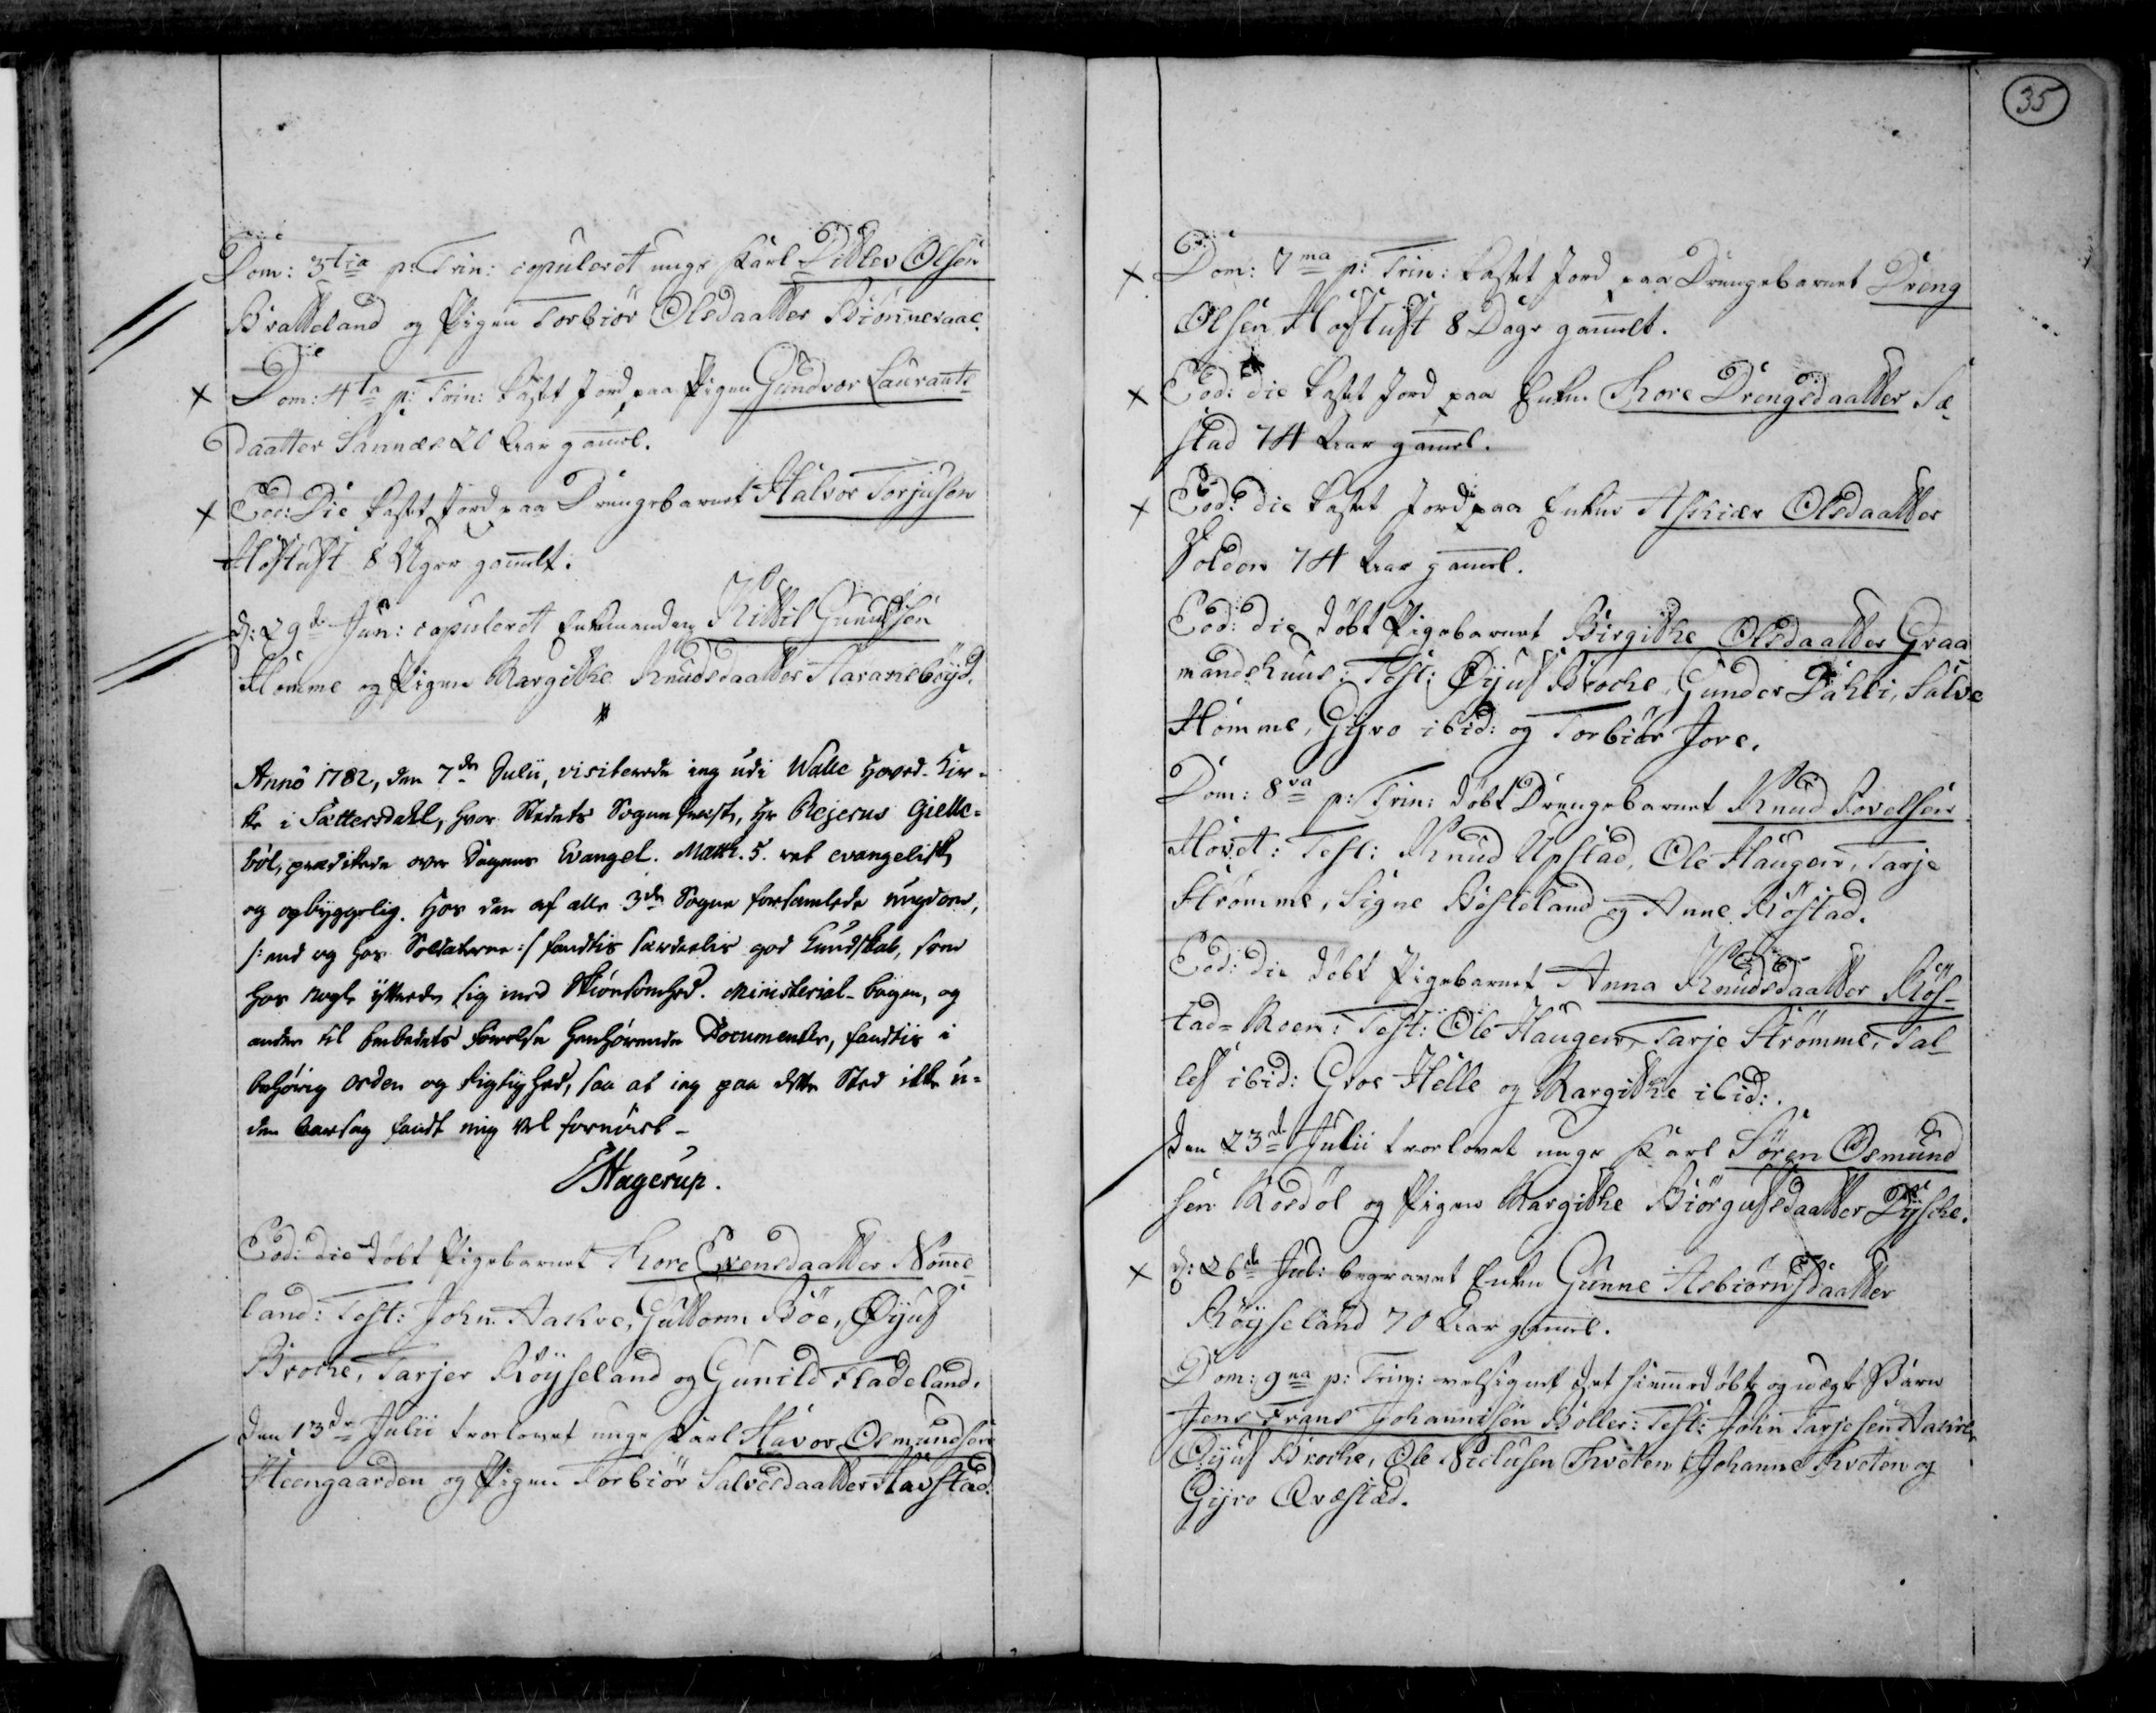 35
Dom: 3tia p: Trin: copuleret unge Karl Ditlev Olsen
Bratteland og Pigen Torbiör Olsdaatter Biönneraae.
Dom: 4ta p: Trin: kastet Jord paa Pigen Gundvor Laurants
daatter Sannæs 20 Aar gaml.
Eod: Die kastet Jord paa Drengebarnet Halvor Torjusen
Hoftuft 8 Uger gamelt.
d: 29de Jun: copuleret Enkemanden Kittil Gunulfsen
Homme og Pigen Margithe Knudsdaatter Harartebøyd.
Anno 1782, den 7de Julii, visiterede ieg udi Walle Hoved-Kir-
ke i Sættersdahl, hvor Stedets Sognepræst, Hr Rejerus Gielle-
böl, prædikede over Dagens Evangel. Matth. 5. ret evangelisk
og opbyggelig. Hos den af alle 3de Sogne forsamlede ungdom,
/: end og hos Soldaterne :/ fandtes særdeeles god Kundskab, som
hos nogle yttrede sig med Skiönsomhed. Ministerial-bogen, og
andre til Embedets förelse henhørende Documenter, fandtis i
behörig Orden og Rigtighed, saa at ieg paa dette Sted ikke u-
den aarsag fandt mig vel fornöiet -
E Hagerup.
Eod: die döbt Pigebarnet Thore Evensdaatter Nomme
land: Test: John Aakre, Guttorm Böe, Öyuf
Broche, Tarjer Röyseland og Gunild Fladeland.
Den 13de Julii trorlovet unge Karl Havor Osmundsen
Heengaarden og Pigen Torbiör Salvesdaatter Havstad.
Dom: 7ma p: Trin: kastet Jord paa Drengebarnet Dreng
Olsen Hoftuft 8 Dage gamelt.
Eod: die kastet Jord paa Enken Thore Drengsdaatter Sæ
stad 74 Aar gaml.
Eod: die kastet Jord paa Enken Askiær Olsdaatter
74 Aar gaml.
Eod: die döbt Pigebarnet Birgithe Olsdaatter Graa
mandshuus: Test: Öyuf Broche, Gunder Dahli, Salve
Homme, Gyro ibid: og Torbiör Jore.
Dom: 8va p: Trin: döbt Drengebarnet Knud Rovelsen
Hovet: Test: Knud Upstad, Ole Haugen, Tarje
Strömme, Signe Bösteland og Anne Röstad.
Eod: die döbt Pigebarnet Anna Knudsdaatter Rös-
tad-Moen: Test: Ole Haugen, Tarje Strömme, Tal
lef ibid: Groe Helle og Margithe ibid:.
Den 23de Julii trorlovet unge Karl Sören Osmund
sen Rosdöl og Pigen Margithe Biörgufsdaatter Dysche.
d: 26de Jul: begravet Enken Gunne Asbiörnsdaatter
Röyseland 70 Aar gaml.
Dom: 9na p: Trin: velsignet det hiemmedöbte og uægte Barn
Jens Frans Johannisen Böller: Test: John Tarjesen Aakre,
Öyuf Broche, Ole Nielusen Kveten, Johanne Kveten og
Gyro Qvæstad.